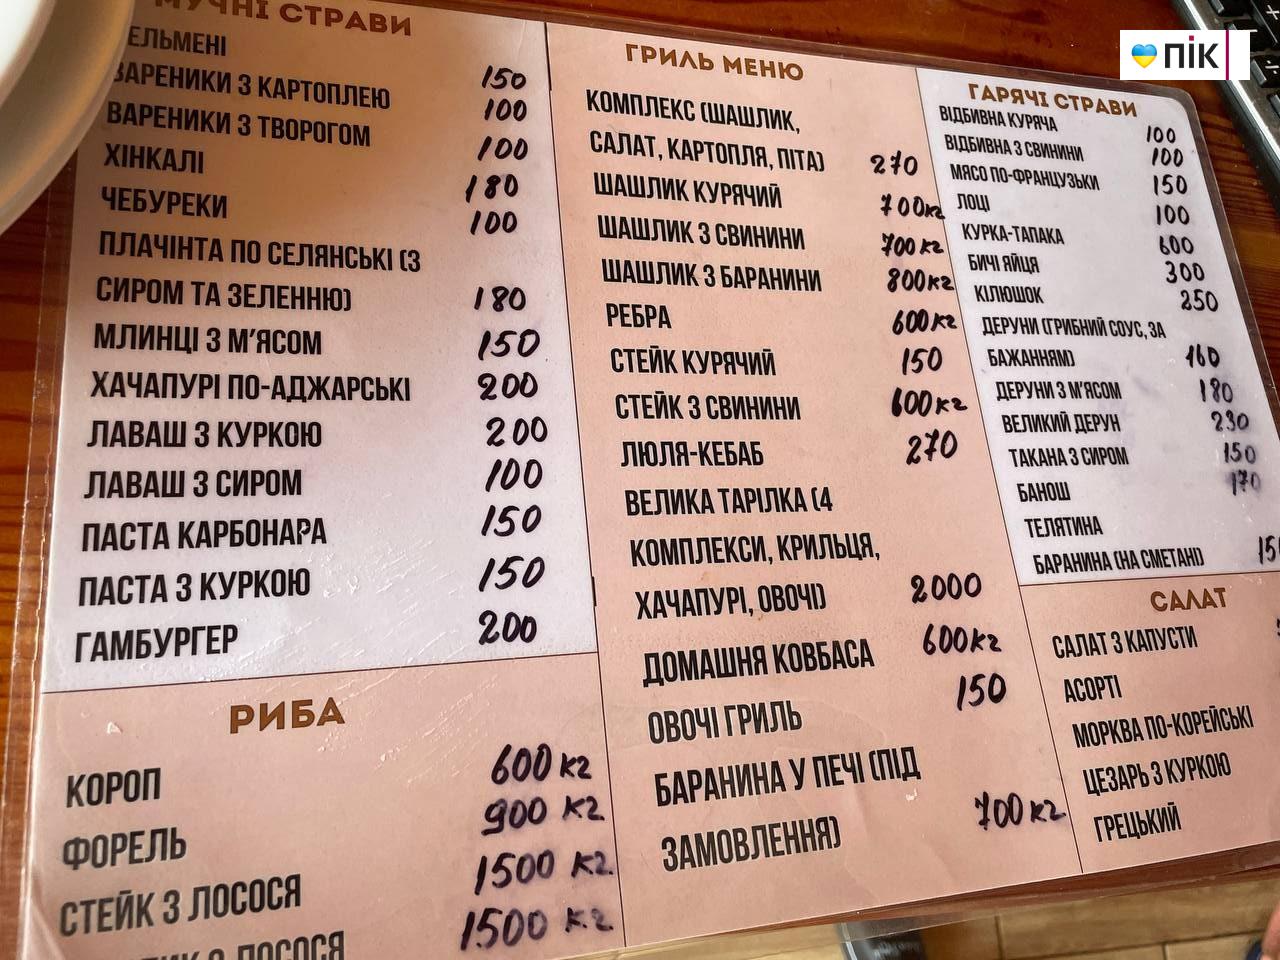 МУЧНІ СТРАВИ
ПЕЛЬМЕНІ 150
ВАРЕНИКИ З КАРТОПЛЕЮ 100
ВАРЕНИКИ З ТВОРОГОМ 100
ХІНКАЛІ 180
ЧЕБУРЕКИ 100
ПЛАЧІНТА ПО СЕЛЯНСЬКІ (З
СИРОМ ТА ЗЕЛЕННЮ) 180
МЛИНЦІ З М'ЯСОМ 150
ХАЧАПУРІ ПО-АДЖАРСЬКІ 200
ЛАВАШ З КУРКОЮ 200
ЛАВАШ З СИРОМ 100
ПАСТА КАРБОНАРА 150
ПАСТА З КУРКОЮ 150
ГАМБУРГЕР 200
РИБА
КОРОП 600 кг
ФОРЕЛЬ 900 кг
СТЕЙК З ЛОСОСЯ 1500 кг
ЛОСОСЯ 1500 кг
ГРИЛЬ МЕНЮ
КОМПЛЕКС (ШАШЛИК,
САЛАТ, КАРТОПЛЯ, ПІТА) 270
ШАШЛИК КУРЯЧИЙ 700кг
ШАШЛИК З СВИНИНИ 700кг
ШАШЛИК З БАРАНИНИ 800кг
РЕБРА 600кг
СТЕЙК КУРЯЧИЙ 150
СТЕЙК З СВИНИНИ 600кг
ЛЮЛЯ-КЕБАБ 270
ВЕЛИКА ТАРІЛКА (4
КОМПЛЕКСИ, КРИЛЬЦЯ,
ХАЧАПУРІ, ОВОЧІ) 2000
ДОМАШНЯ КОВБАСА 600кг
ОВОЧІ ГРИЛЬ 150
БАРАНИНА У ПЕЧІ (ПІД
ЗАМОВЛЕННЯ) 700кг
ГАРЯЧІ СТРАВИ
ВІДБИВНА КУРЯЧА 100
ВІДБИВНА З СВИНИНИ 100
МЯСО ПО-ФРАНЦУЗЬКИ 150
ЛОЦІ 100
КУРКА-ТАПАКА 600
БИЧІ ЯЙЦЯ 300
КІЛЮШОК 250
ДЕРУНИ (ГРИБНИЙ СОУС, ЗА
БАЖАННЯМ) 160
ДЕРУНИ З М'ЯСОМ 180
ВЕЛИКИЙ ДЕРУН 230
ТАКАНА З СИРОМ 150
БАНОШ 170
ТЕЛЯТИНА
БАРАНИНА (НА СМЕТАНІ)
САЛАТ
САЛАТ З КАПУСТИ
АСОРТІ
МОРКВА ПО-КОРЕЙСЬКІ
ЦЕЗАРЬ З КУРКОЮ
ГРЕЦЬКИЙ
пік